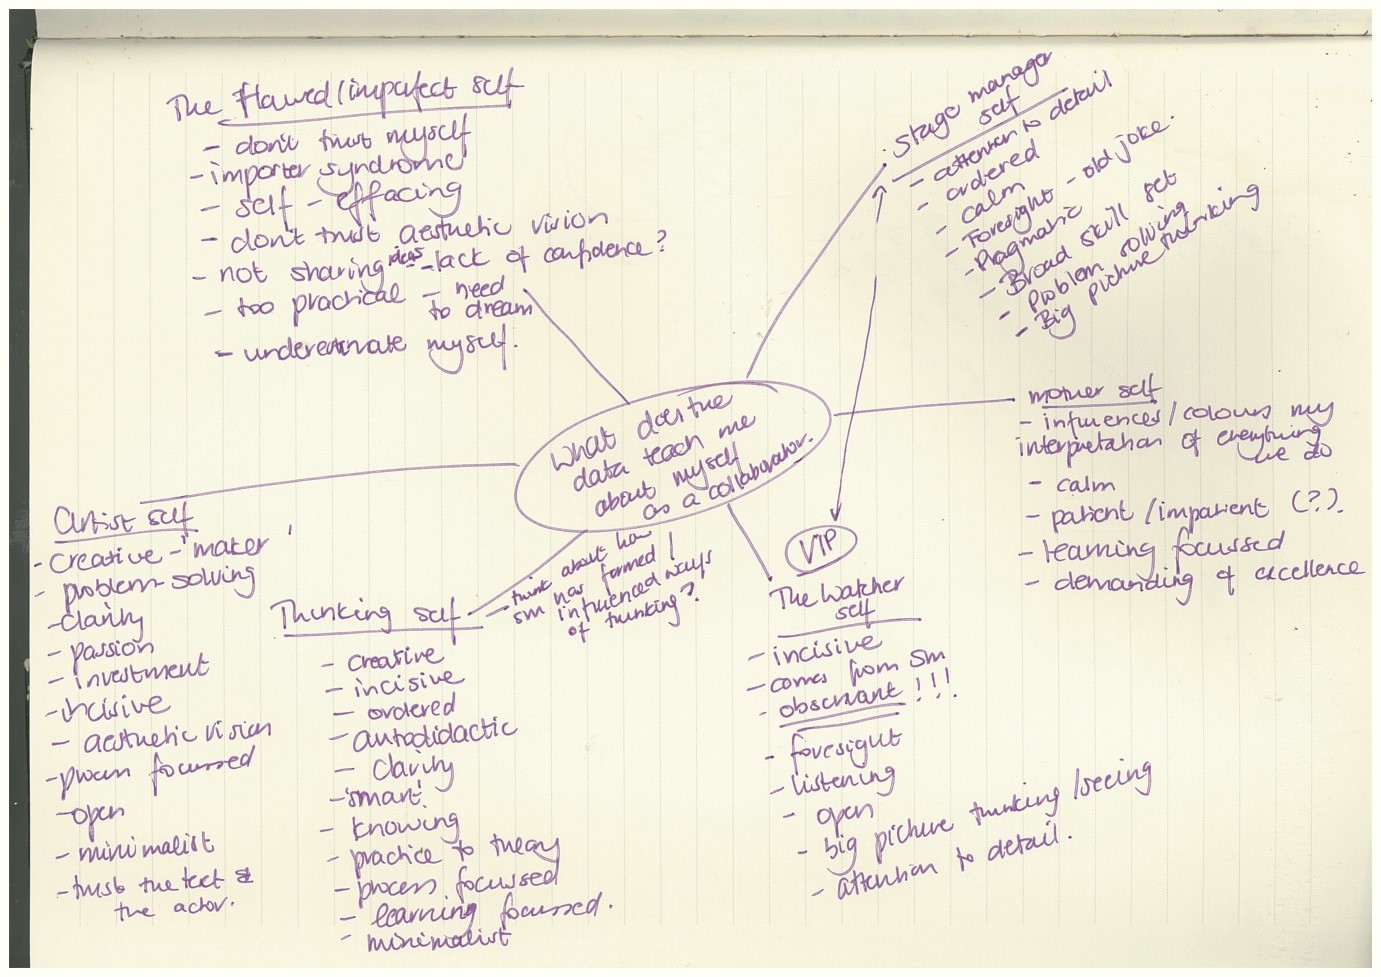 The Flawed/imperfect self
- don't trust myself
- imposter syndrome
- self-effacing
- don't trust aesthetic vision
- not sharing ideas - lack of confidence?
- too practical - need
to dream
- underestimate myself.
Stage manager
self
- attention to detail
- ordered
- calm
- Foresight - old joke.
- Pragmatic
- Broad skill set
- Problem solving
- Big picture thinking
What does the
data teach me
about myself
as a collaborator.
mother self
- influences/colours my
interpretation of everything
we do
- calm
- patient/impatient (?).
- learning focussed
- demanding of excellence
Artist self
- creative - 'maker'
- problem-solving
- clarity
- passion
- investment
- incisive
- aesthetic vision
- process focussed
- open
- minimalist
- trust the text &
the actor.
Thinking self
- think about how
sm has formed/
influenced ways
of thinking?
- creative
- incisive
- ordered
- autodidactic
- clarity
- 'smart'
- knowing
- practice to theory
- process focussed
- learning focussed.
- minimalist
VIP
The Watcher
self
- incisive
- comes from SM
- observant!!!
- foresight
- listening
- open
- big picture thinking/seeing
- attention to detail.